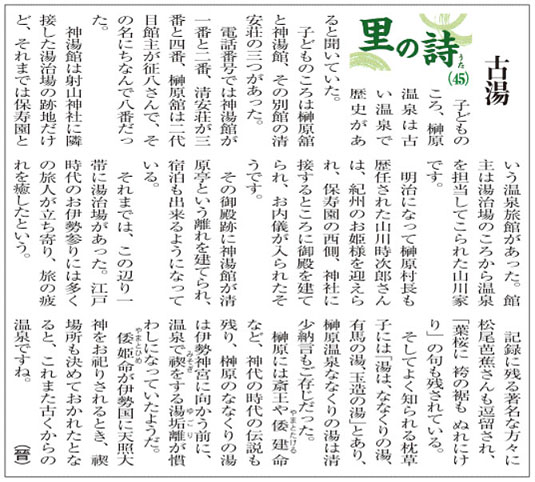 里の詩
うた
(45)
古湯
子どもの
ころ、榊原
温泉は古
い温泉で
歴史があ
ると聞いていた。
子どものころは榊原舘
と神湯館、その別館の清
安荘の三つがあった。
電話番号では神湯館が
一番と二番、清安荘が三
番と四番、榊原舘は二代
目館主が征八さんで、そ
の名にちなんで八番だっ
た。
神湯館は射山神社に隣
接した湯治場の跡地だけ
ど、それまでは保寿園と
いう温泉旅館があった。館
主は湯治場のころから温泉
を担当してこられた山川家
です。
明治になって榊原村長も
歴任された山川時次郎さん
は、紀州のお姫様を迎えら
れ、保寿園の西側、神社に
接するところに御殿を建て
られ、お内儀が入られたそ
うです。
その御殿跡に神湯館が清
原亭という離れを建てられ、
宿泊も出来るようになって
いる。
それまでは、この辺り一
帯に湯治場があった。江戸
時代のお伊勢参りには多く
の旅人が立ち寄り、旅の疲
れを癒したという。
記録に残る著名な方々に
松尾芭蕉さんも逗留され、
「葉桜に 袴の裾も ぬれにけ
り」の句も残されている。
そしてよく知られる枕草
子には「湯は、ななくりの湯、
有馬の湯、玉造の湯」とあり、
榊原温泉ななくりの湯は清
少納言もご存じだった。
榊原には斎王や倭建命
やまとたける
など、神代の時代の伝説も
残り、榊原のななくりの湯
は伊勢神宮に向かう前に、
温泉で禊をする湯垢離が慣
みそぎ
ゆごり
わしになっていたようだ。
倭姫命が伊勢国に天照大
やまとひめ
神をお祀りされるとき、禊
場所も決めておかれたとな
ると、これまた古くからの
温泉ですね。
(晉)